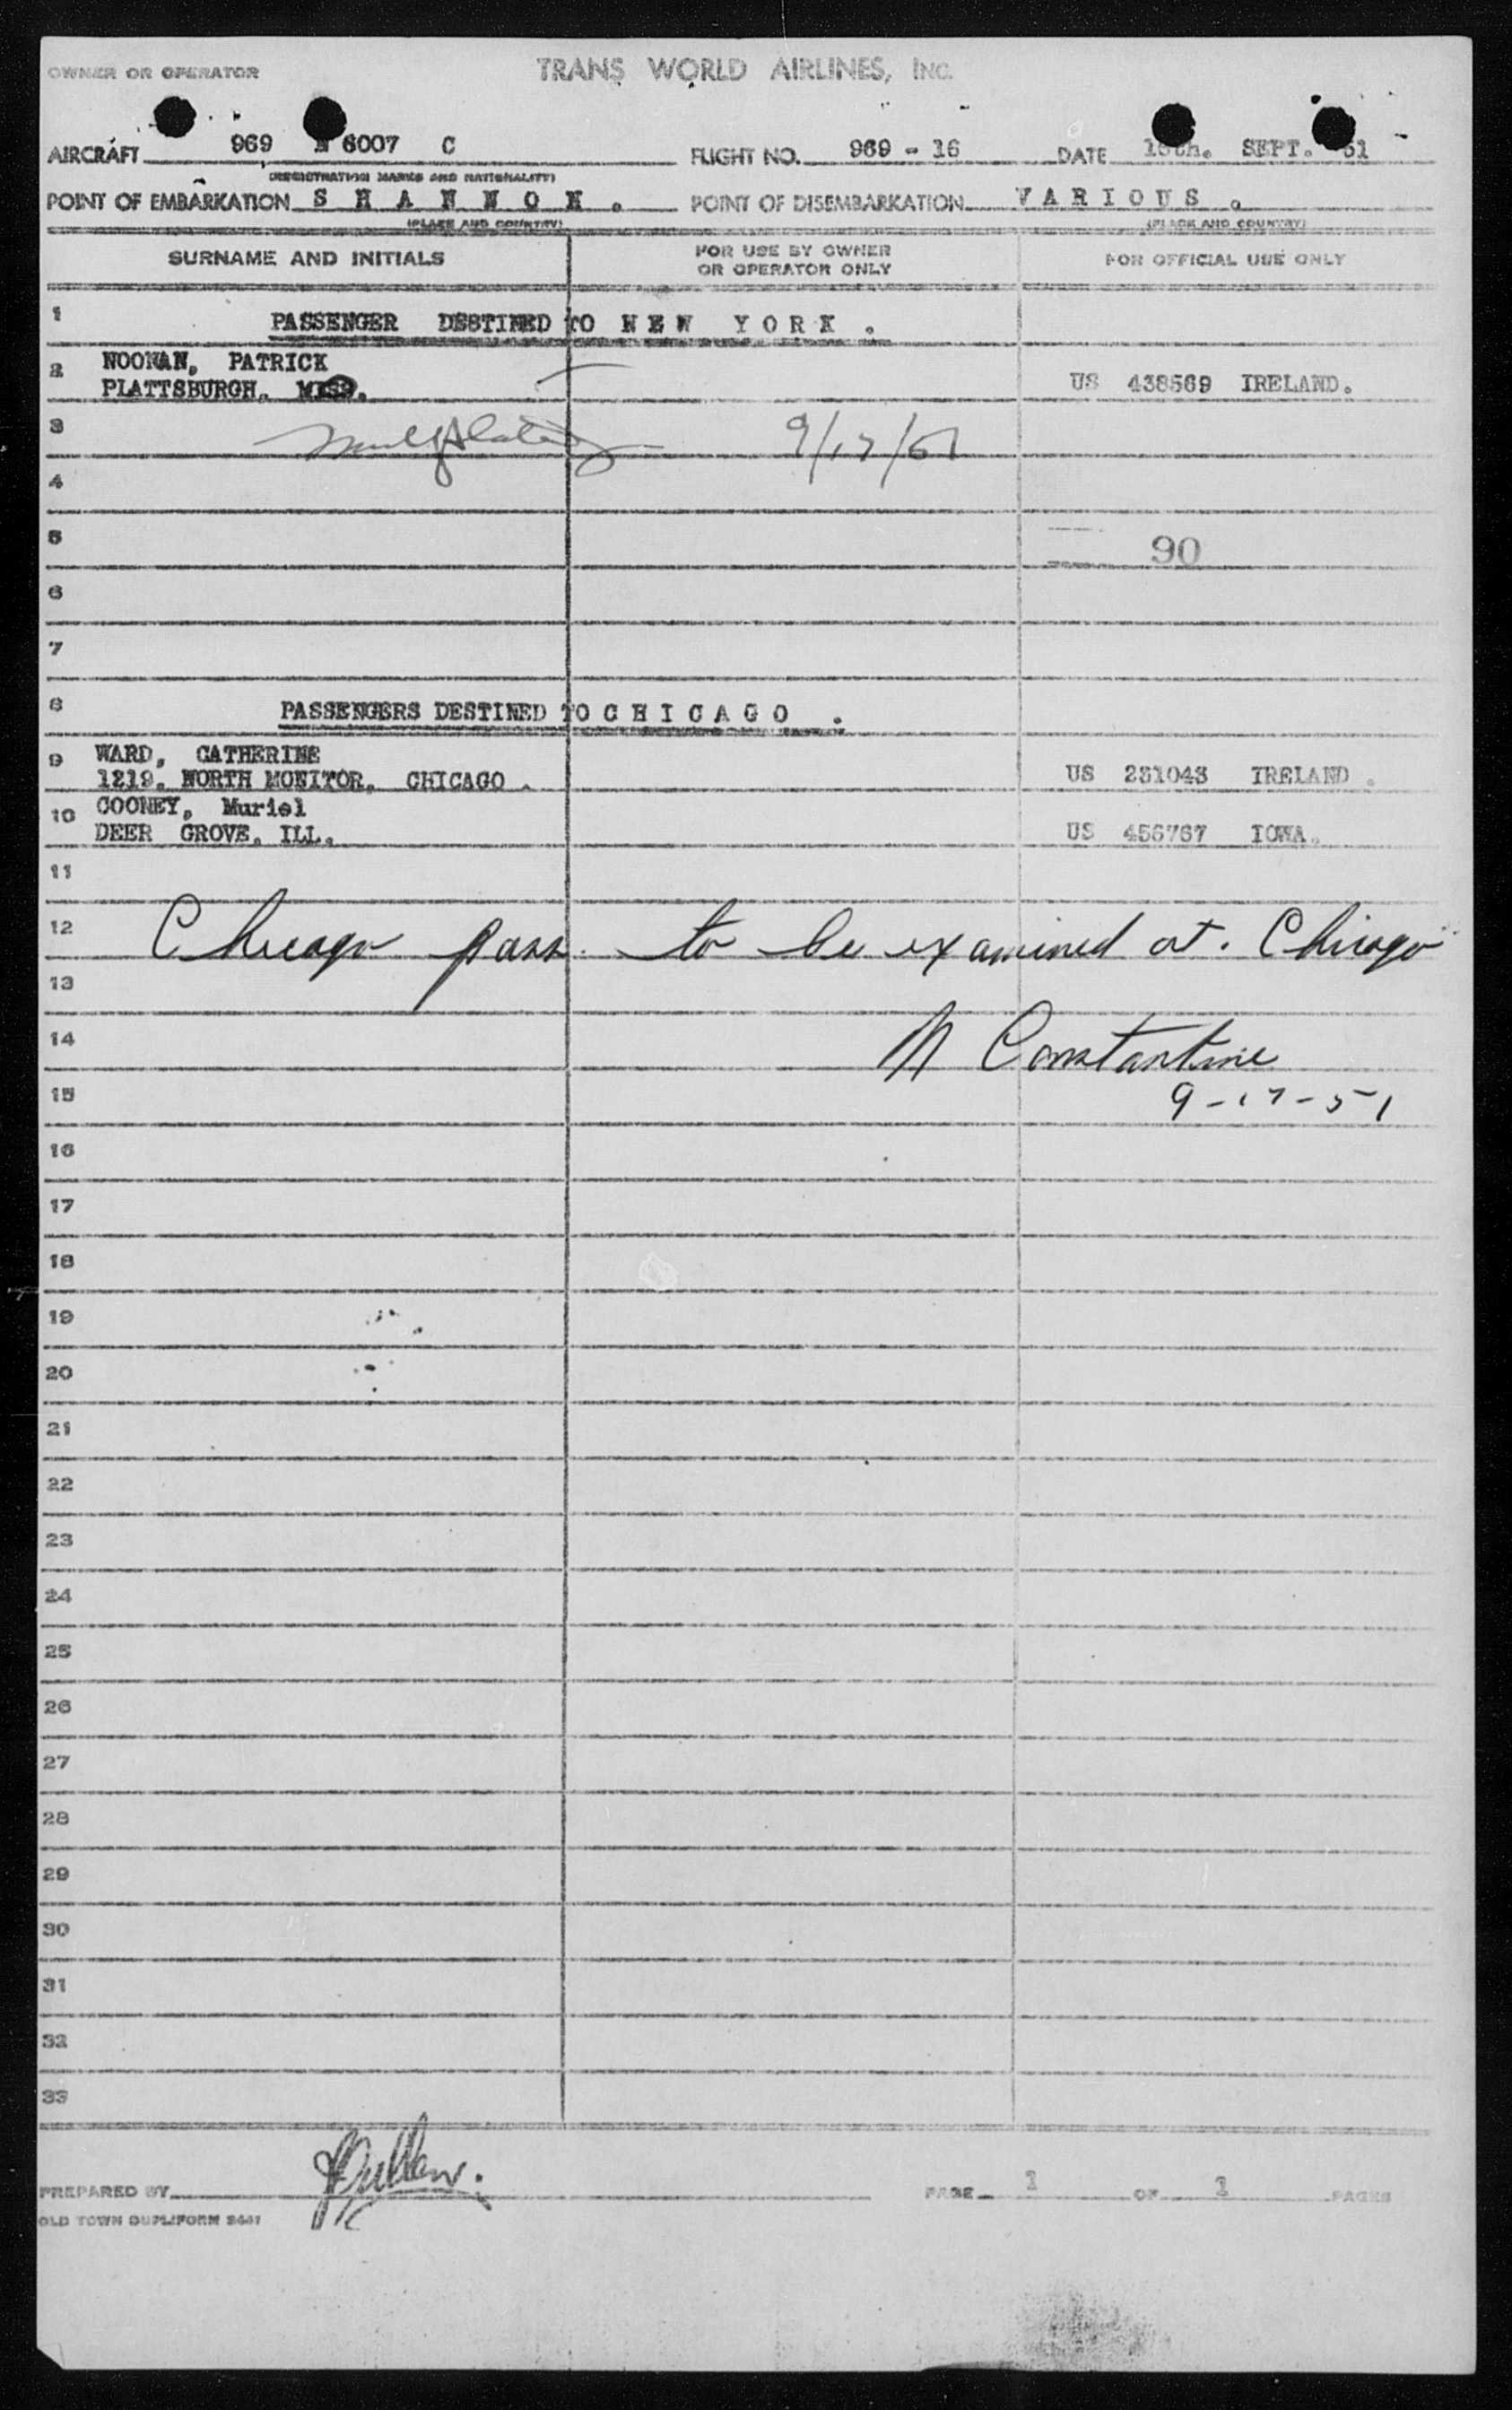 OWNER OR OPERATOR TRANS WORLD AIRLINES, INC.
AIRCRAFT 969 N 6007 C FLIGHT NO. 969 - 16 DATE 16th. SEPT. 51
(REGISTRATION MARKS AND NATIONALITY)
POINT OF EMBARKATION S H A N N O N . POINT OF DISEMBARKATION V A R I O U S .
(PLACE AND COUNTRY) (PLACE AND COUNTRY)
SURNAME AND INITIALS FOR USE BY OWNER OR OPERATOR ONLY FOR OFFICIAL USE ONLY
1 PASSENGER DESTINED TO N E W Y O R K .
2 NOONAN, PATRICK
PLATTSBURGH, MISS. US 438569 IRELAND.
3 9/17/51
4
5 90
6
7
8 PASSENGERS DESTINED TO C H I C A G O .
9 WARD, CATHERINE
1219. NORTH MONITOR, CHICAGO . US 231043 IRELAND .
10 COONEY, Muriel
DEER GROVE, ILL. US 456767 IOWA.
11
12 Chicago pass. to be examined at. Chicago
13
14 N Constantine
15 9-17-51
16
17
18
19
20
21
22
23
24
25
26
27
28
29
30
31
32
33
PREPARED BY PAGE 1 OF 1 PAGES
OLD TOWN DUPLIFORM 2441